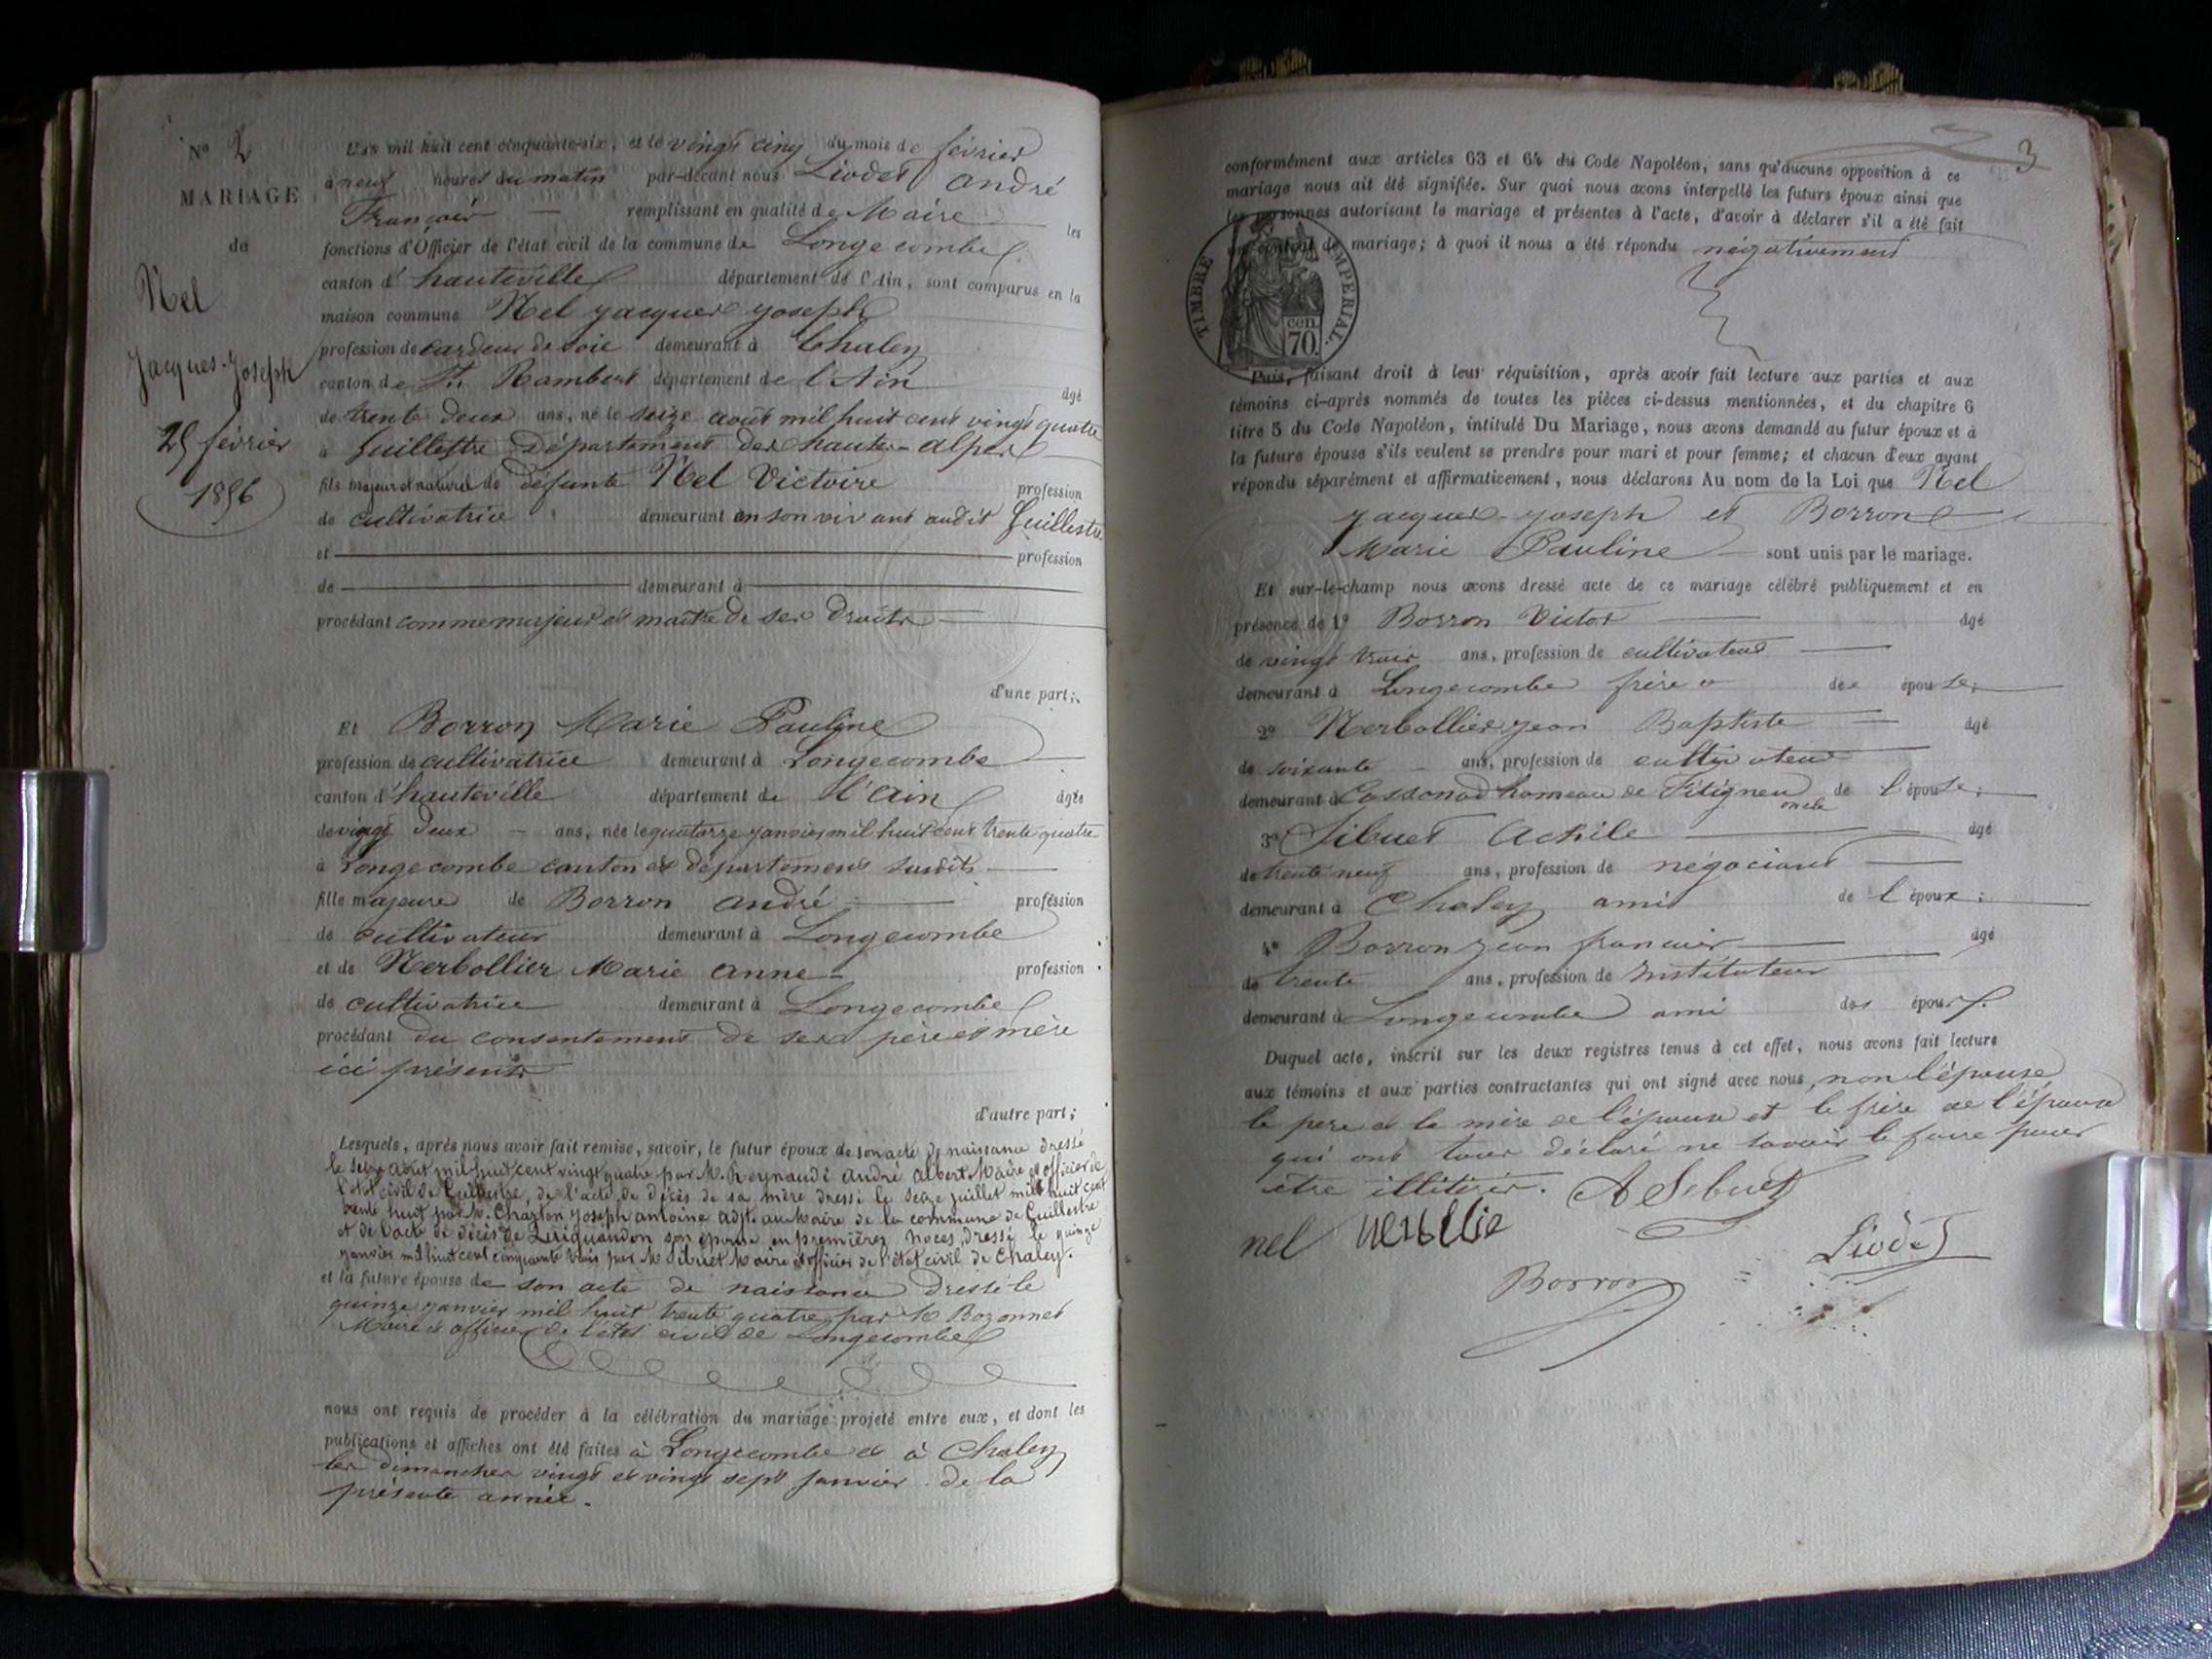 N° 2
MARIAGE
de
Nel
Jacques-Joseph
25 février
1856
L'an mil huit cent cinquante-six, et le vingt cinq du mois de février
à neuf heures du matin par-devant nous Liodet André
François remplissant en qualité de Maire les
fonctions d'Officier de l'état civil de la commune de Longecombe
canton d'hauteville département de l'Ain, sont comparus en la
maison commune Nel jacques joseph
profession de cardeur de soie demeurant à Chaley
canton de St Rambert département de l'Ain âgé
de trente deux ans, né le seize août mil huit cent vingt quatre
à Guillestre Département des hautes-alpes
fils majeur et naturel de défunte Nel Victoire profession
de cultivatrice demeurant en son vivant audit Guillestre
et profession
de demeurant à
procédant comme majeur et maître de ses droits
d'une part;
Et Borron Marie Pauline
profession de cultivatrice demeurant à Longecombe
canton d'hauteville département de l'Ain âgée
de vingt deux ans, née le quatorze janvier mil huit cent trente quatre
à Longecombe canton et département susdits
fille majeure de Borron andré profession
de cultivateur demeurant à Longecombe
et de Nerbollier Marie anne profession
de cultivatrice demeurant à Longecombe
procédant du consentement de ses père et mère
ici présents
d'autre part;
Lesquels, après nous avoir fait remise, savoir, le futur époux de son acte de naissance dressé
le seize août mil huit cent vingt quatre par M. Reynaud andré Albert Maire et officier de
l'état civil de Guillestre, de l'acte de décès de sa mère dressé le seize juillet mil huit cent
trente huit par M. Joseph antoine adjt. au Maire de la commune de Guillestre
et de l'acte de décès de son épouse en premières noces, dressé le quinze
janvier mil huit cent cinquante trois par M Sibuet Maire et officier de l'état civil de Chaley.
et la future épouse de son acte de naissance dressé le
quinze janvier mil huit trente quatre par M Bozonnet
Maire et officier de l'état civil de Longecombe
nous ont requis de procéder à la célébration du mariage projeté entre eux, et dont les
publications et affiches ont été faites à Longecombe et à Chaley
les dimanches vingt et vingt sept janvier de la
présente année.
3
conformément aux articles 63 et 64 du Code Napoléon, sans qu'aucune opposition à ce
mariage nous ait été signifiée. Sur quoi nous avons interpellé les futurs époux ainsi que
les personnes autorisant le mariage et présentes à l'acte, d'avoir à déclarer s'il a été fait
un contrat de mariage; à quoi il nous a été répondu négativement
TIMBRE IMPERIAL.
cen.
70.
Puis, faisant droit à leur réquisition, après avoir fait lecture aux parties et aux
témoins ci-après nommés de toutes les pièces ci-dessus mentionnées, et du chapitre 6
titre 5 du Code Napoléon, intitulé Du Mariage, nous avons demandé au futur époux et à
la future épouse s'ils veulent se prendre pour mari et pour femme; et chacun d'eux ayant
répondu séparément et affirmativement, nous déclarons Au nom de la Loi que Nel
jacques-joseph et Borron
Marie Pauline sont unis par le mariage.
Et sur-le-champ nous avons dressé acte de ce mariage célébré publiquement et en
présence de 1° Borron Victor âgé
de vingt trois ans, profession de cultivateur
demeurant à Longecombe frère de épouse;
2° Nerbollier jean Baptiste âgé
de soixante ans, profession de cultivateur
demeurant à hameau de oncle de l'épouse;
3° Sibuet Achile âgé
de trente neuf ans, profession de négociant
demeurant à Chaley ami de l'époux;
4° Borron jean francois âgé
de trente ans, profession de Instituteur
demeurant à Longecombe ami des époux.
Duquel acte, inscrit sur les deux registres tenus à cet effet, nous avons fait lecture
aux témoins et aux parties contractantes qui ont signé avec nous, non l'épouse
le pere et la mère de l'épouse et le frère de l'épouse
qui ont tous déclaré ne savoir le faire pour
être illitérés. A Sibuet
nel
Borron
Liodet